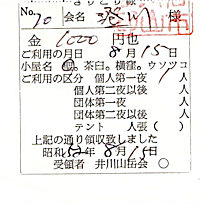 No. 70 会名 様
金 1000 円也
ご利用の月日 8月15日
小屋名 ・茶臼。横窪。ウソッコ
ご利用の区分 個人第一夜 1人
個人第二夜以後
団体第一夜
団体第二夜以後
テント 人張( )
上記の通り領収致しました
昭和 年 8月15日
受領者 井川山岳会